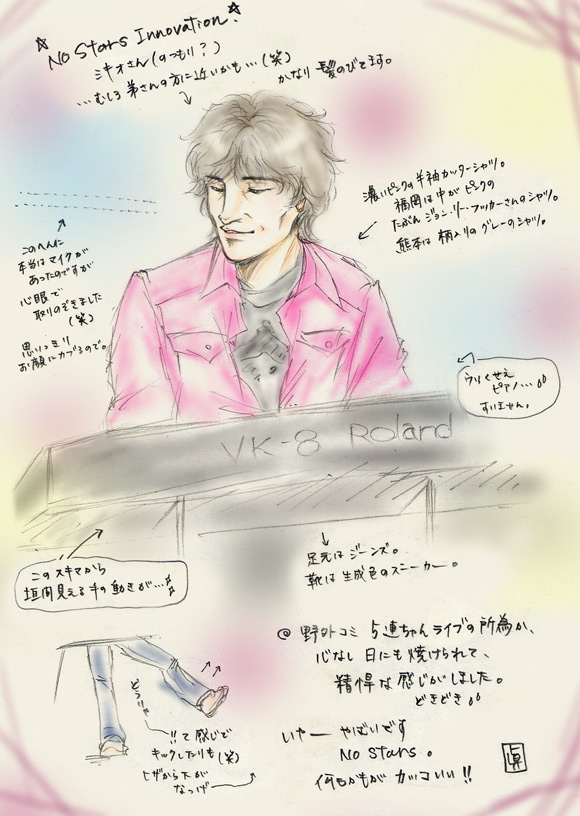 ☆ No Stars Innovation. ☆
ミキオさん(のつもり?)
…むしろ 弟さんの方に近いかも…(笑)
かなり 髪のびてます。
濃いピンクの半袖カッターシャツ。
福岡は中がピンクの
たぶんジョン・リー・フッカーさんのシャツ。
熊本は柄入りのグレーのシャツ。
このへんに
本当はマイクが
あったのですが
心眼で
取りのぞきました
(笑)
思いっきり
お顔にカブるので。
うりくせえ
ピアノ…
すいません。
VK-8 Roland
このスキマから
垣間見える手の動きが…
足元はジーンズ。
靴は生成色のスニーカー。
@ 野外コミ 5連ちゃんライブの所為か、
心なし 日にも焼けられて、
精悍な感じがしました。
どきどき
どうりゃ
!!て感じで
キックしたりも(笑)
ヒザから下が
なっげ
いやー やばいです
No Stars。
何もかもが カッコいい!!